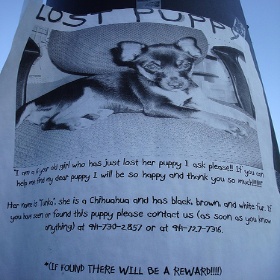 LOST PUPPY
"I am a 6 year old girl who has just lost her puppy I ask please!!! If you can
help me find my dear puppy I will be so happy and thank you so much!!!!!!"
Her name is "Tinka", she is a Chihuahua and has black, brown, and white fur. If
you have seen or found this puppy please contact us (as soon as you know
anything) at 914-730-2857 or at 914-723-7316.
*(IF FOUND THERE WILL BE A REWARD!!!!)